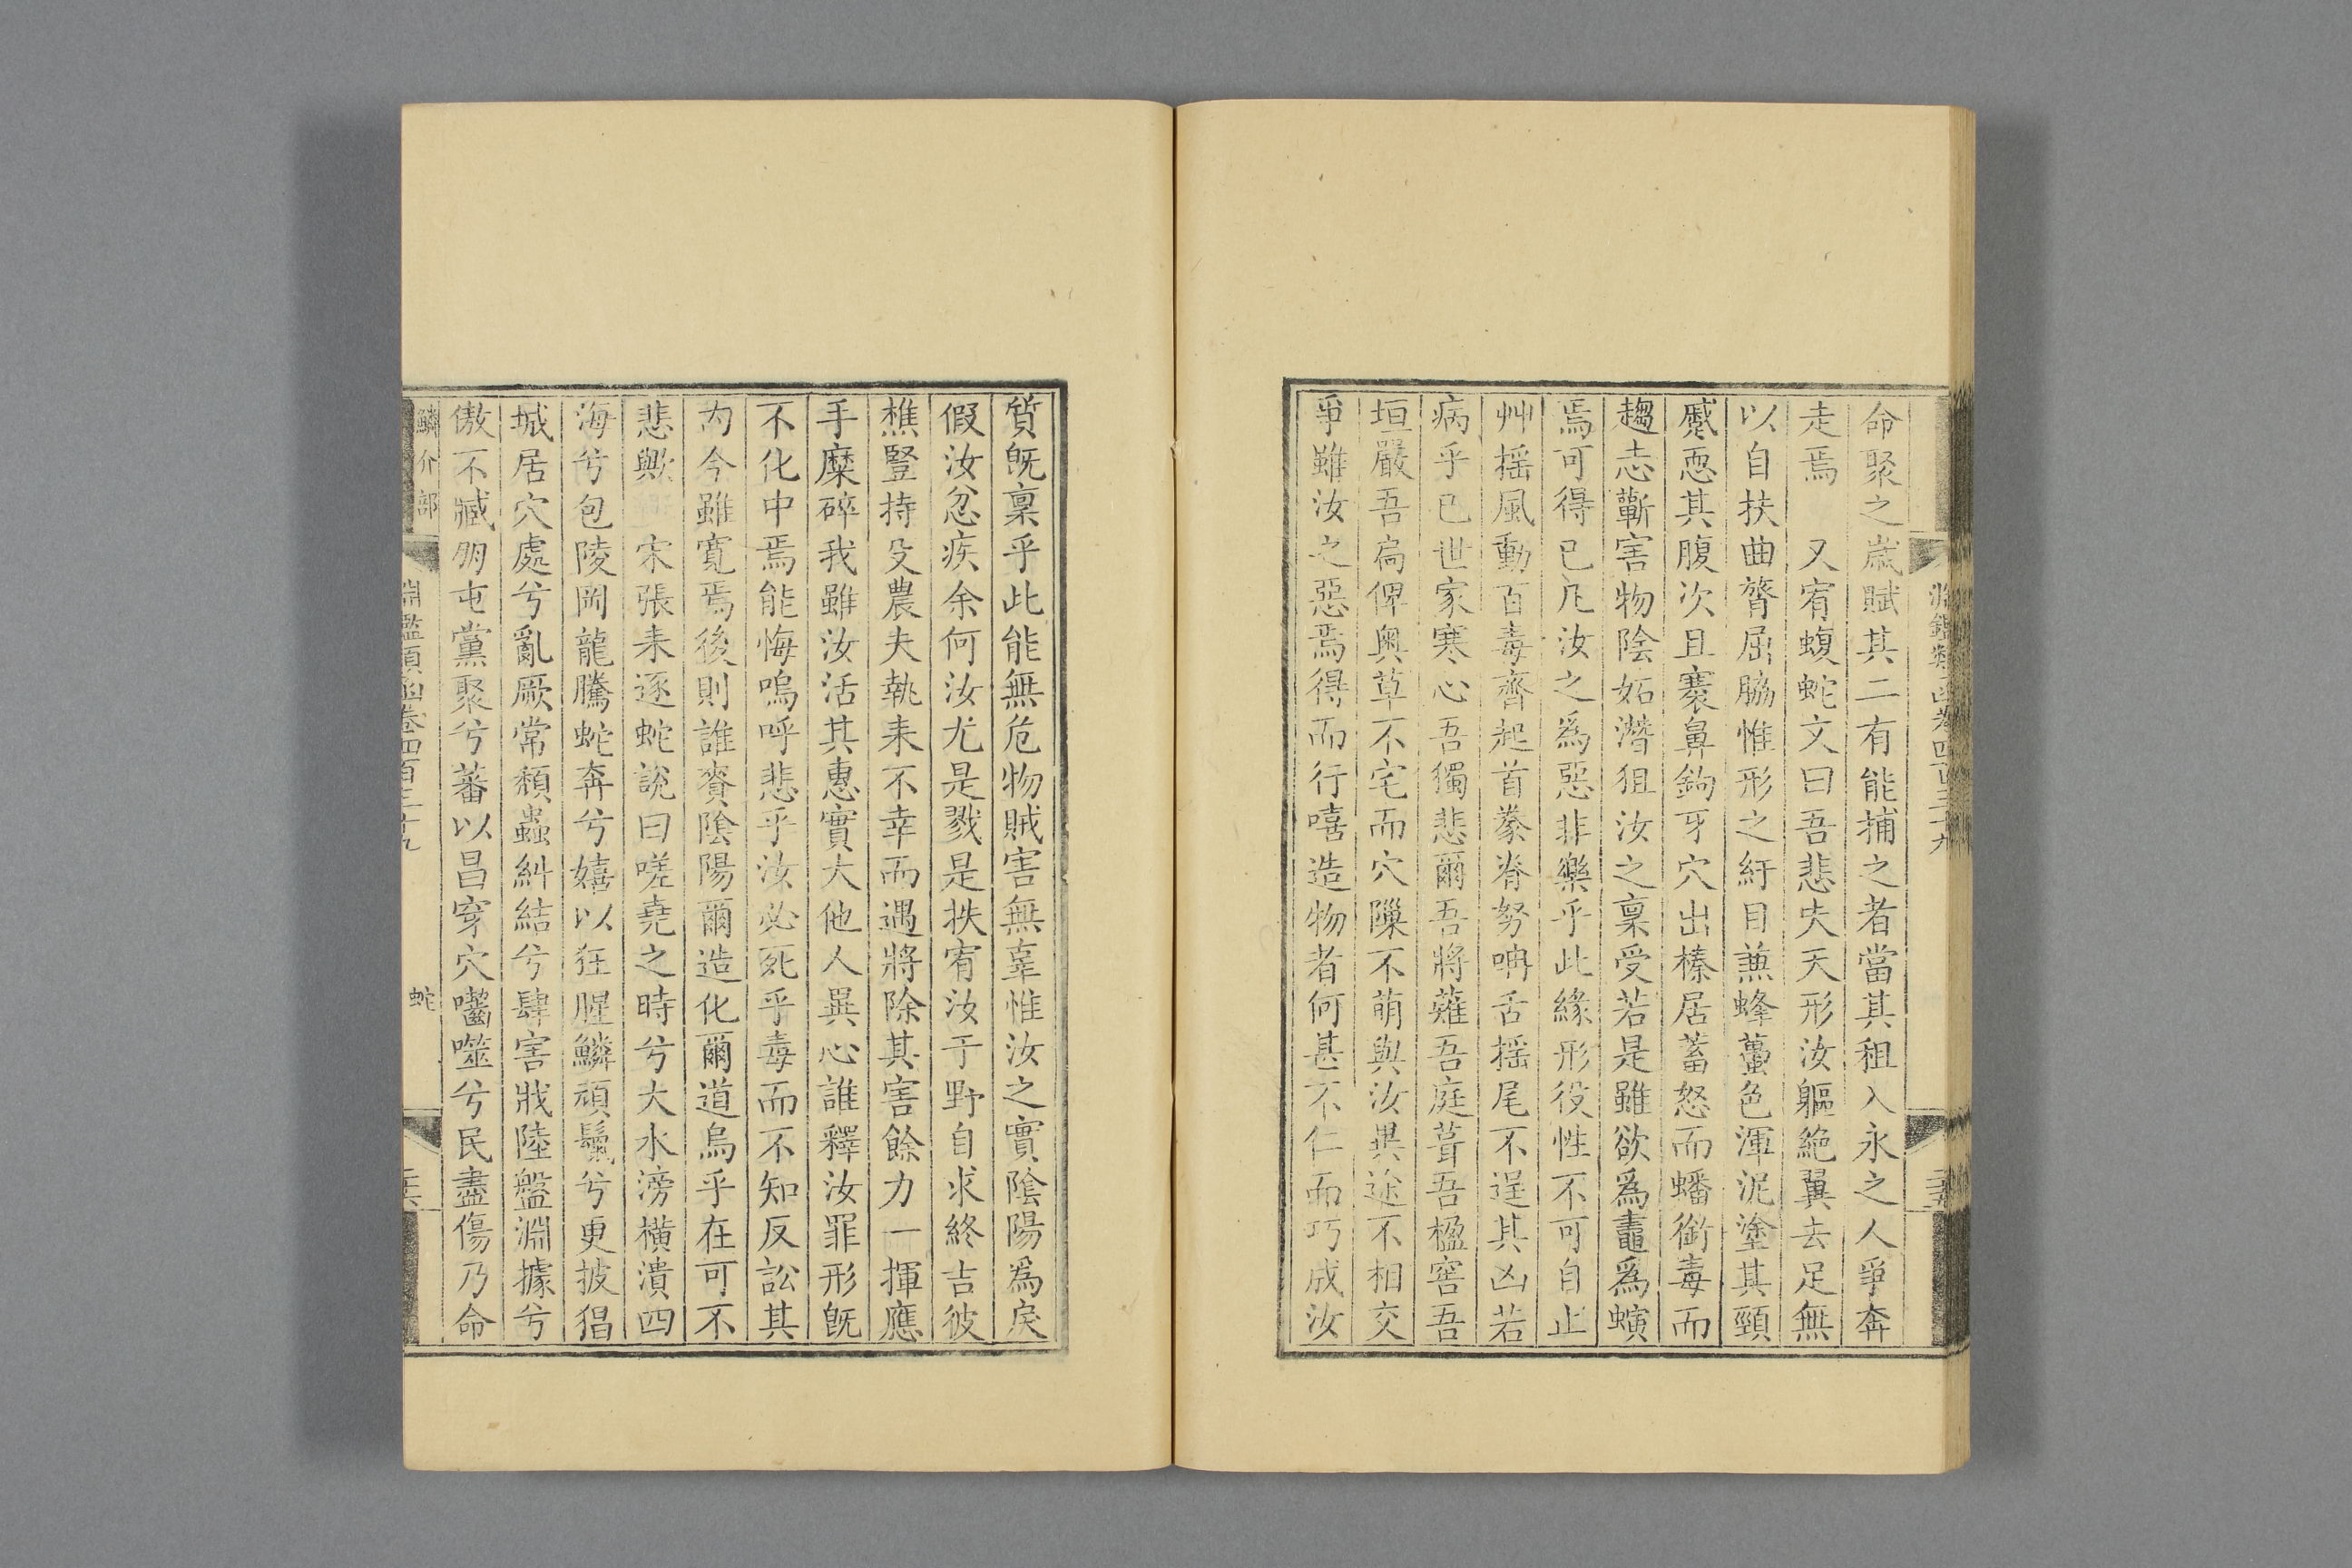 命聚之歲賦其二有能捕之者當其租入永之人爭奔
走焉　又宥蝮蛇文曰吾悲夫天形汝軀絶翼去足無
以自扶曲膂屈脇惟形之紆目兼蜂蠆色渾泥塗其頸
蹙恧其腹次且褰鼻鉤牙穴出榛居蓄怒而蟠銜毒而
趨志蘄害物陰妬潛狙汝之稟受若是雖欲爲鼃爲螾
焉可得已凡汝之爲惡非樂乎此緣形役性不可自止
艸摇風動百毒齊起首拳脊努呥舌摇尾不逞其凶若
病乎已世家寒心吾獨悲爾吾將薙吾庭葺吾楹窖吾
垣嚴吾扄俾奥草不宅而穴隟不萌與汝異途不相交
爭雖汝之惡焉得而行嘻造物者何甚不仁而巧成汝
質既稟乎此能無危物賊害無辜惟汝之實陰陽爲戾
假汝忿疾余何汝尤是戮是抶宥汝于野自求終吉彼
樵豎持殳農夫執耒不幸而遇將除其害餘力一揮應
手糜碎我雖汝活其惠實大他人異心誰釋汝罪形既
不化中焉能悔嗚呼悲乎汝必死乎毒而不知反訟其
内今雖寛焉後則誰賚陰陽爾造化爾道烏乎在可不
悲歟　宋張耒逐蛇説曰嗟堯之時兮大水滂橫潰四
海兮包陵岡龍騰蛇奔兮嬉以狂腥鱗頑鬣兮更披猖
城居穴處兮亂厥常頹蟲糾結兮肆害戕陸盤淵據兮
傲不臧朋屯黨聚兮蕃以昌穿穴囓噬兮民盡傷乃命
鱗介部
淵鑑類函卷四百三十九
蛇